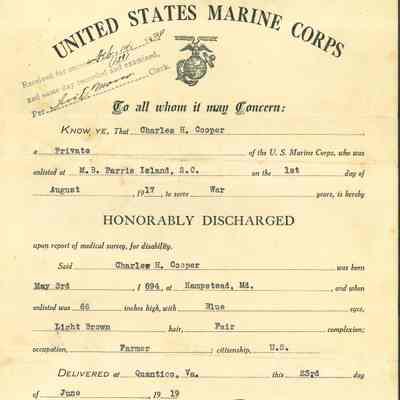 UNITED STATES MARINE CORPS
Received for record
and same day recorded and examined,
Per Clerk.
To all whom it may Concern:
KNOW YE, That Charles H. Cooper
a Private of the U. S. Marine Corps, who was
enlisted at M.B. Parris Island, S.C. on the 1st day of
August 1917 to serve War years, is hereby
HONORABLY DISCHARGED
upon report of medical survey, for disability.
Said Charles H. Cooper was born
May 3rd , 1894, at Hampstead, Md. , and when
enlisted was 66 inches high, with Blue eyes,
Light Brown hair, Fair complexion;
occupation, Farmer ; citizenship, U.S.
DELIVERED at Quantico, Va. this 23rd day
of June 1919